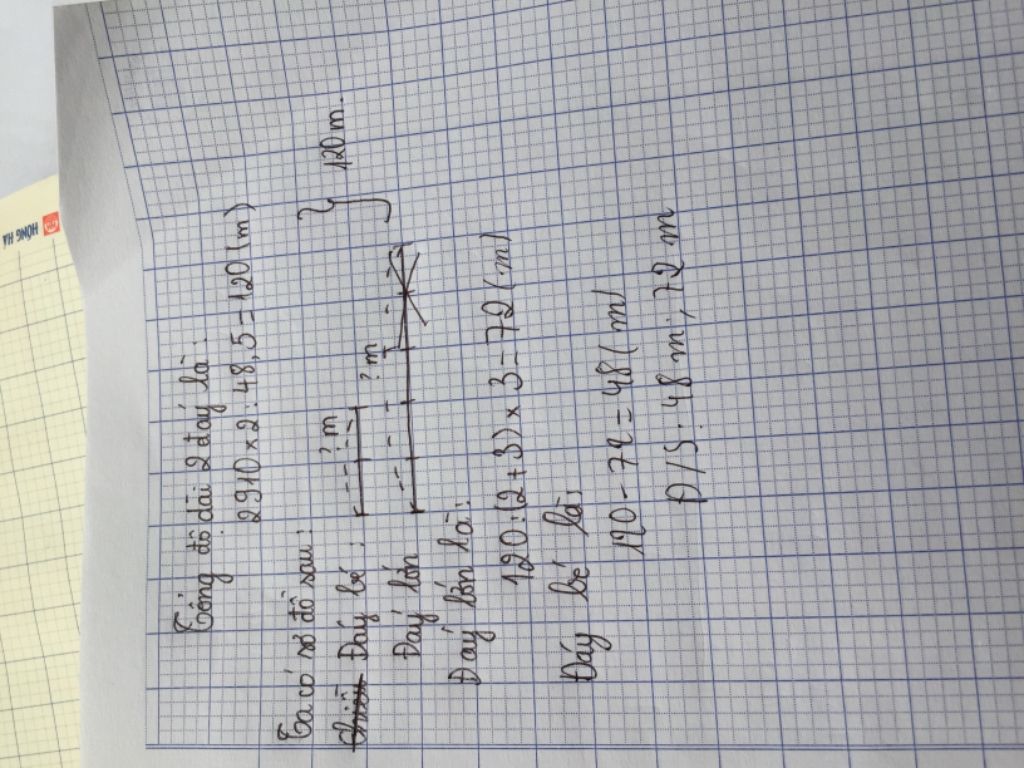 HỒNG HÀ
Tổng độ dài 2 đáy là:
2910 x 2 : 48,5 = 120 (m)
Ta có sơ đồ sau:
Đáy bé: ? m
Đáy lớn ? m
120 m.
Đáy lớn là:
120 : (2 + 3) x 3 = 72 (m)
Đáy bé là:
120 - 72 = 48 (m)
Đ/S: 48 m; 72 m